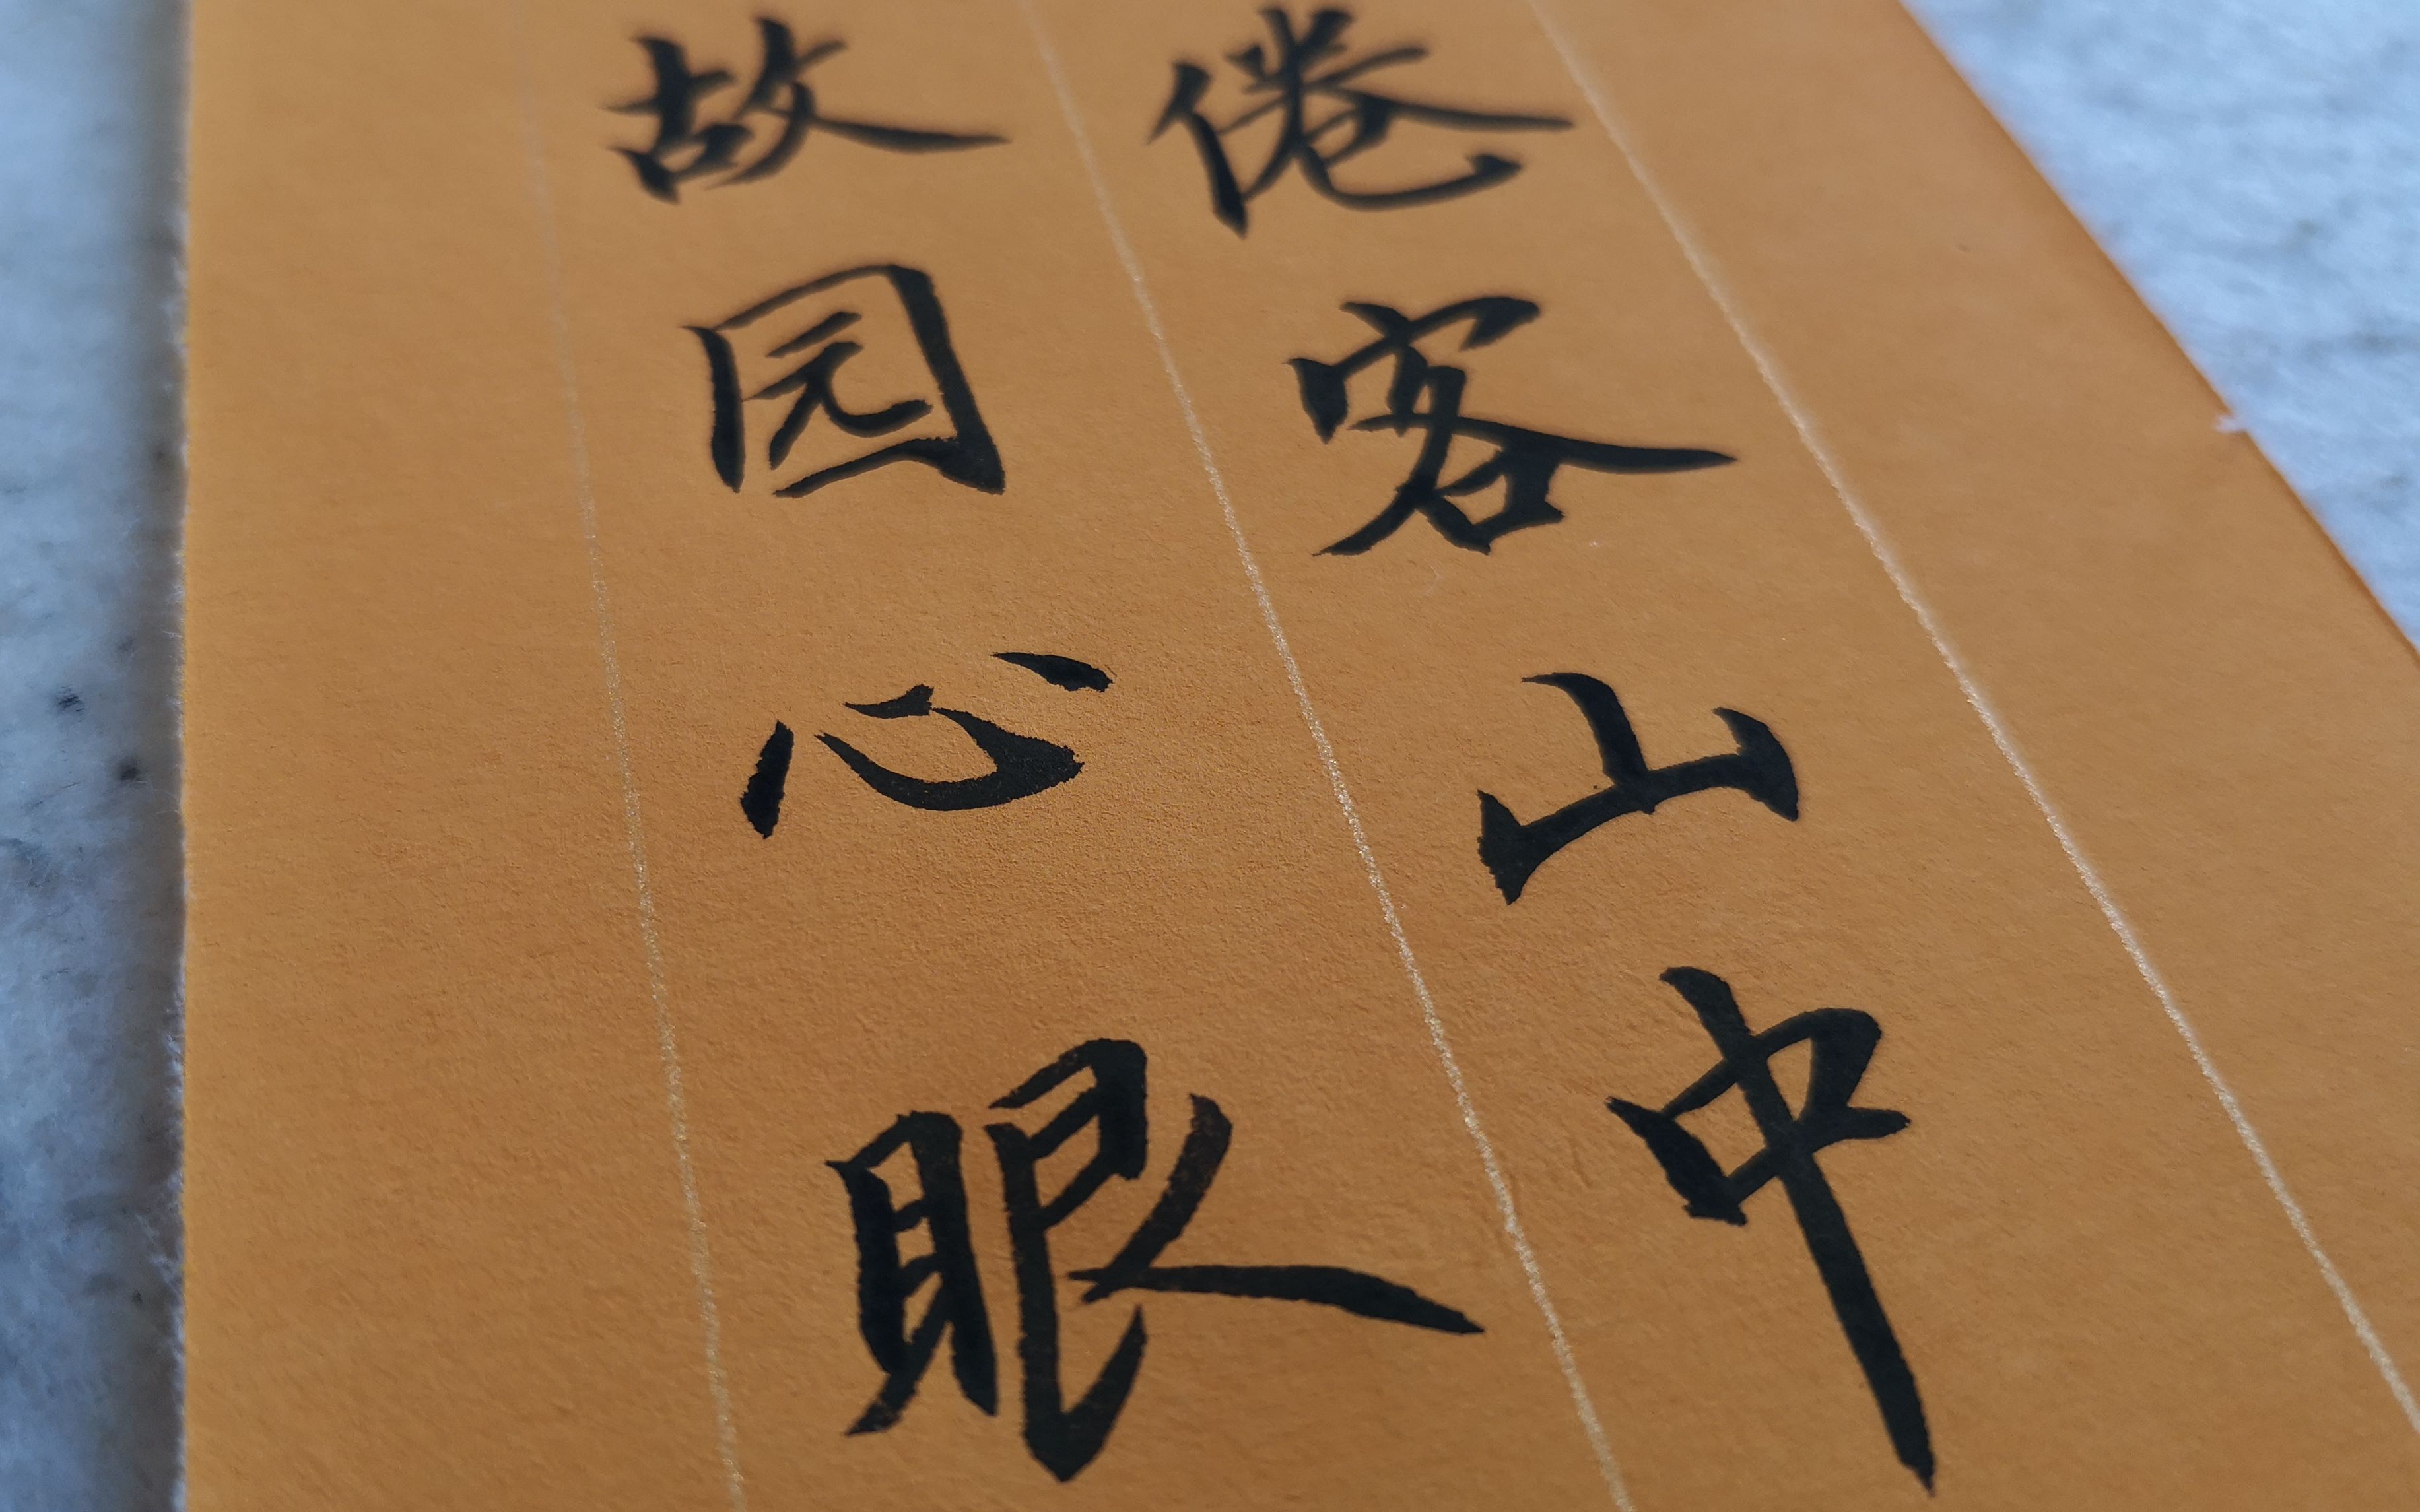 倦客山中
故园心眼